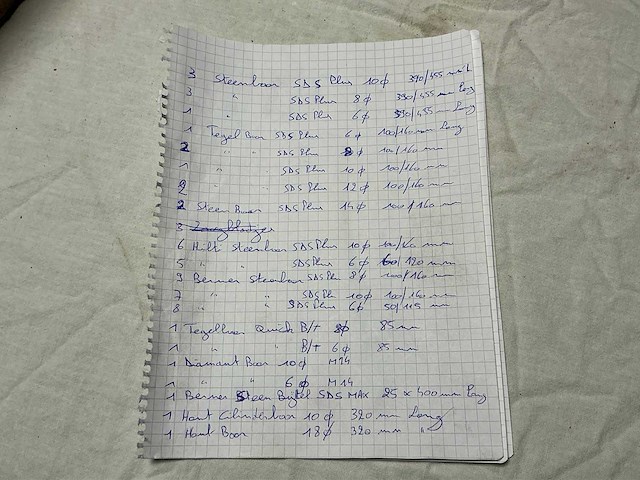 3 Steenboor SDS Plus 10 φ 390/455 mm L
3 " SDS Plus 8 φ 390/455 mm Lang
1 " SDS Plus 6 φ 390/455 mm Lang
1 Tegel Boor SDS Plus 6 φ 100/160 mm Lang
2 " " SDS Plus 8 φ 100/160 mm
1 " " SDS Plus 10 φ 100/160 mm
2 " " SDS Plus 12 φ 100/160 mm
2 Steen Boor SDS Plus 14 φ 100/160 mm
3
6 Hilti Steenboor SDS Plus 10 φ mm
5 " " SDS Plus 6 φ 60/120 mm
9 Berner Steenboor SDS Plus 8 φ 100/160 mm
7 " " SDS Plus 10 φ 100/160 mm
8 " " SDS Plus 6 φ 50/115 mm
1 Tegelboor Quick B/t 8 φ 85 mm
1 " " B/t 6 φ 85 mm
1 Diamant Boor 10 φ M14
1 " " 6 φ M14
1 Berner Steen Bijtel SDS MAX 25 x 400 mm Lang
1 Hout Cilinderboor 10 φ 320 mm Lang
1 Hout Boor 18 φ 320 mm "